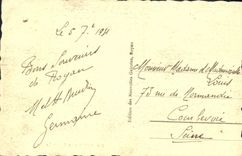 Le 5 7e 1931
Bons Souvenirs
de Royan
M et H
Germaine
Editions des Nouvelles Galeries, Royan
Monsieur Madame et Mademoiselle
Louis
73 rue de Normandie
Courbevoie
Seine